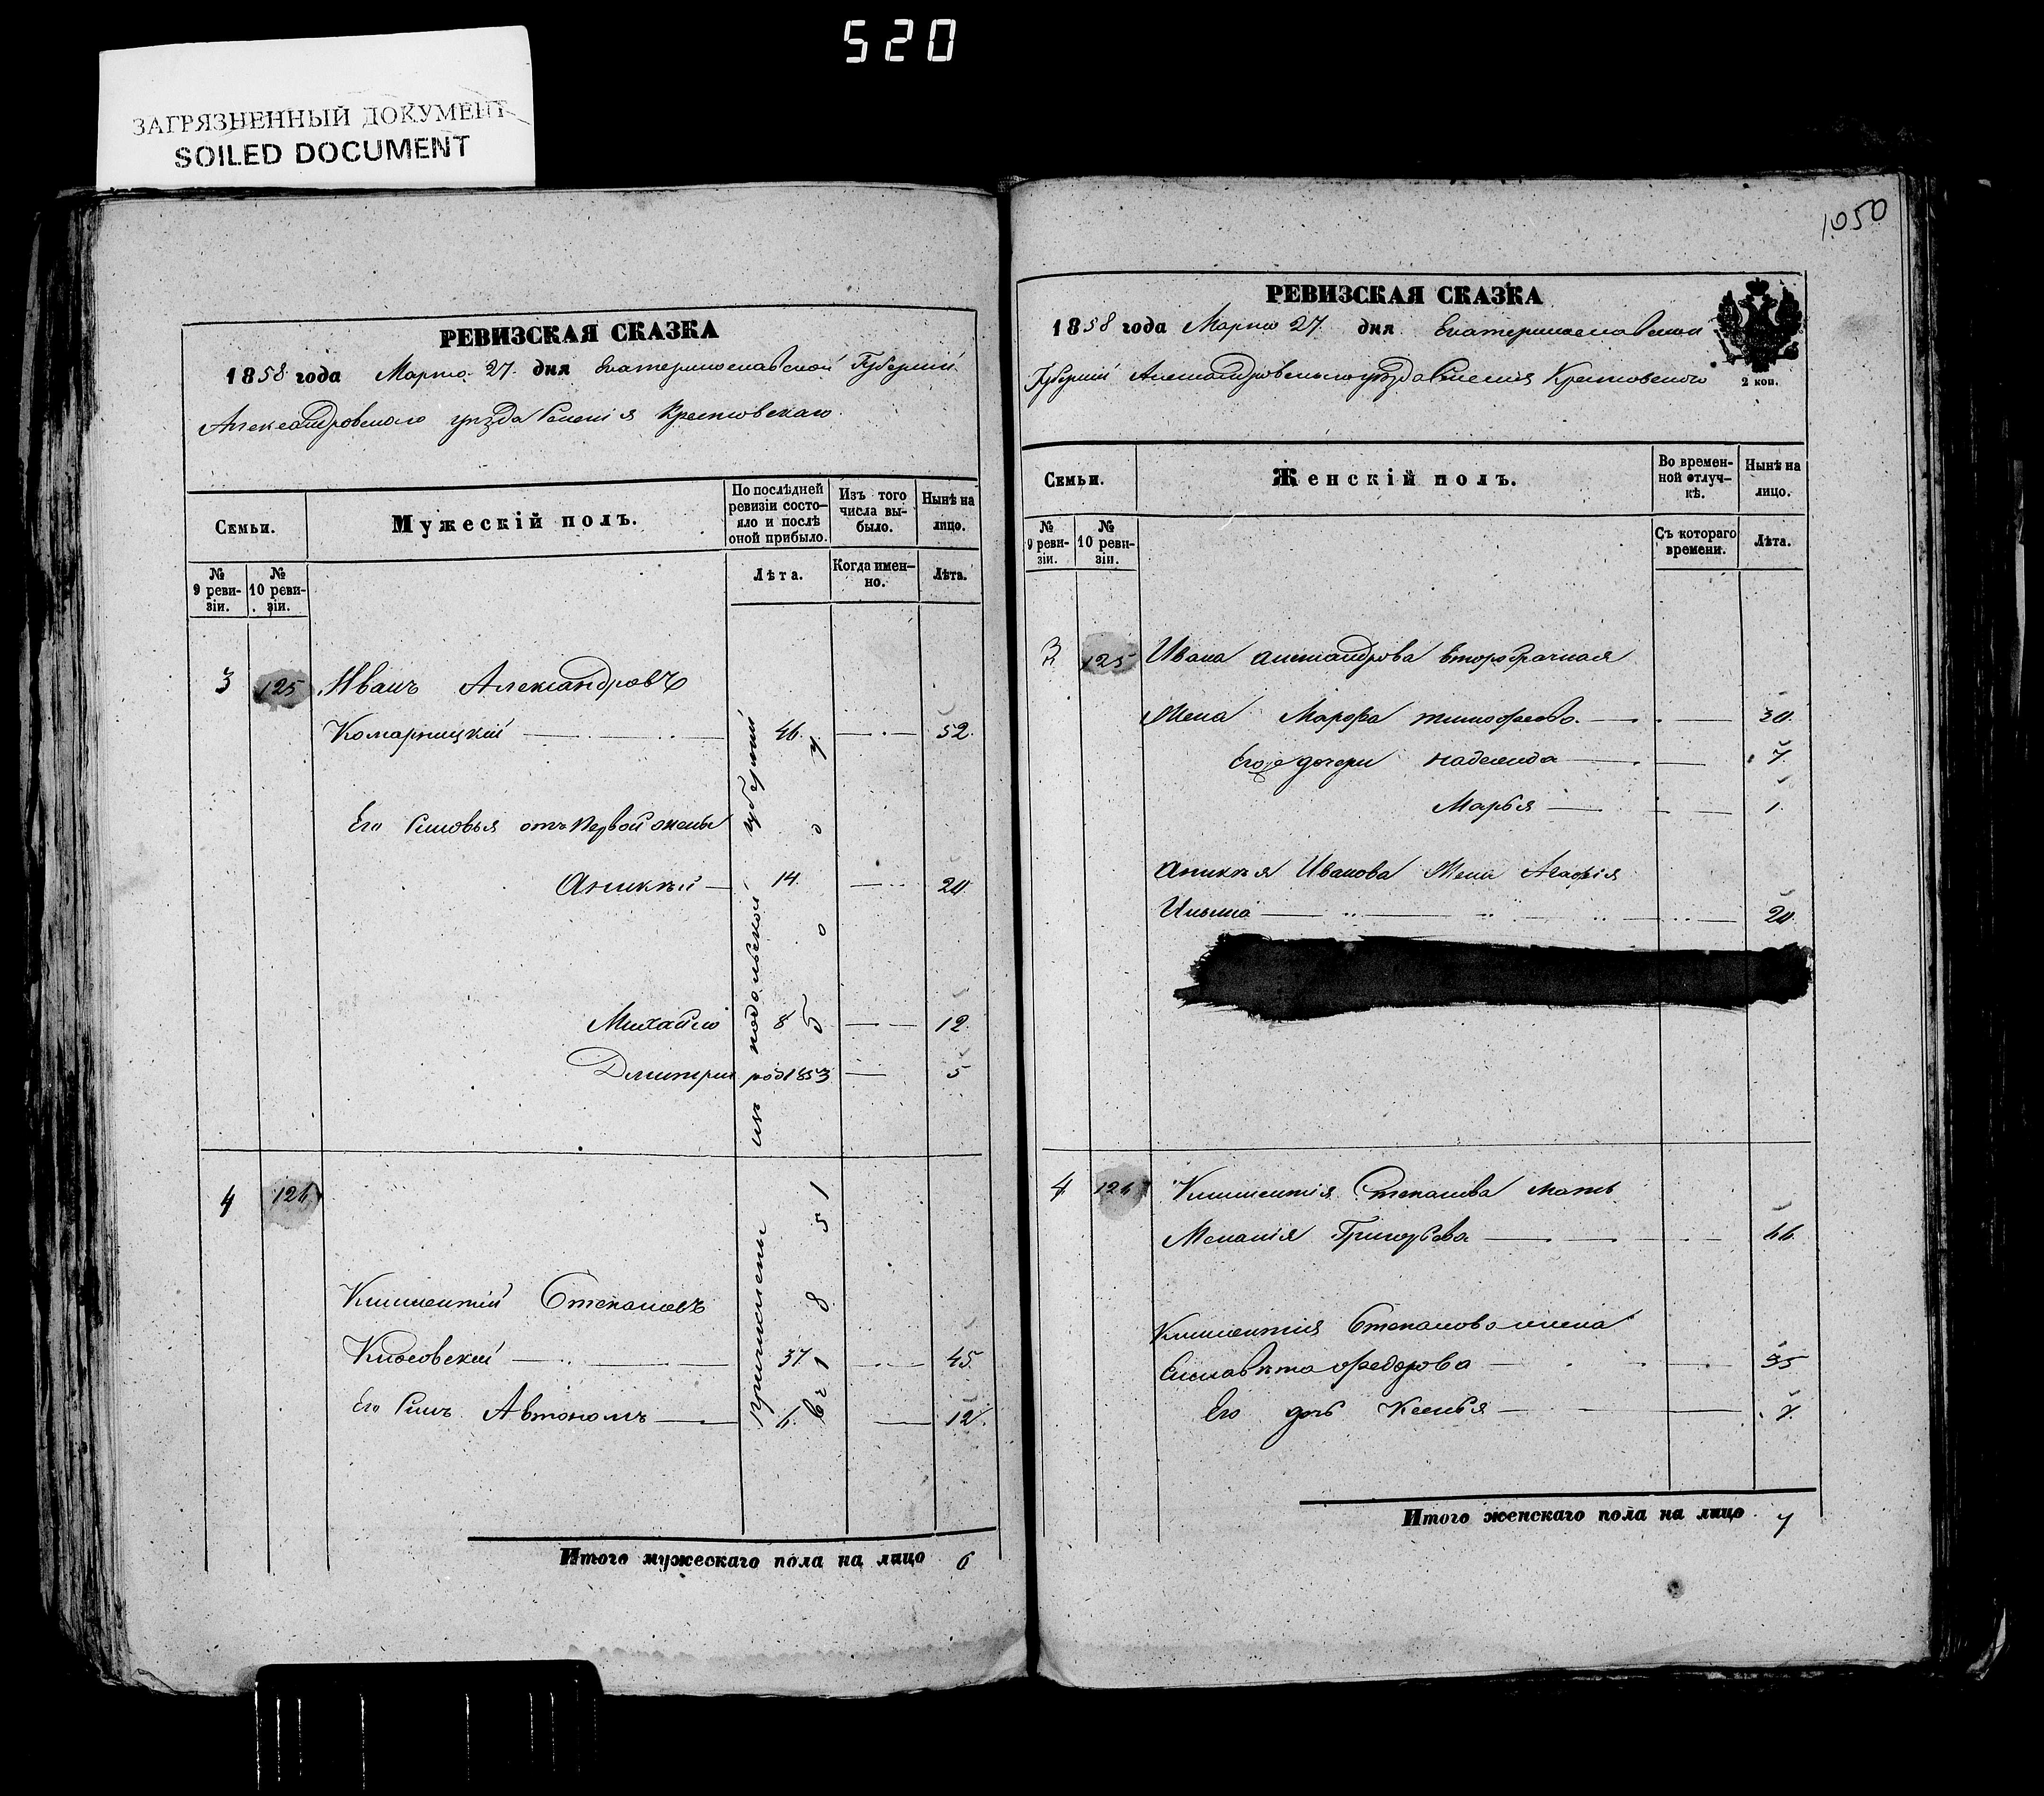 520
ЗАГРЯЗНЕННЫЙ ДОКУМЕНТ
SOILED DOCUMENT
РЕВИЗСКАЯ СКАЗКА
1858 года Марта 27 дня Екатеринославской Губерніи
Александровского уѣзда Селенія
Семьи.
Мужескій полъ.
По послѣдней ревизіи состояло и послѣ оной прибыло.
Изъ того числа выбыло.
Нынѣ на лицо.
№ 9 ревизіи.
№ 10 ревизіи.
Лѣта.
Когда именно.
Лѣта.
3 125 Иванъ Александровъ
Комарницкій 46 52
Его сыновья отъ первой жены
Аникѣй 14 20
Михайло 8 12
Дмитрій род 1853 5
изъ подольской губерніи
4 126
Климентій Степановъ
37 45
Его сынъ Автономъ 6 12
причислены
в 1851 году
Итого мужескаго пола на лицо 6
1050
РЕВИЗСКАЯ СКАЗКА
1858 года Марта 27 дня Екатеринославской
Губерніи Александровского уѣзда Селенія
2 коп.
Семьи.
Женскій полъ.
Во временной отлучкѣ.
Нынѣ на лицо.
№ 9 ревизіи.
№ 10 ревизіи.
Съ котораго времени.
Лѣта.
3 125 Ивана Александрова второбрачная
Жена Марфа 30
Его дочери Надежда 7
Марья 1
Аникѣя Иванова Жена Агафія
20
4 126 Климентія Степанова мать
Меланія Григорьева 66
Климентія Степанова жена
Елисавѣта Федорова 35
Его дочь Ксенья 7
Итого женскаго пола на лицо 7